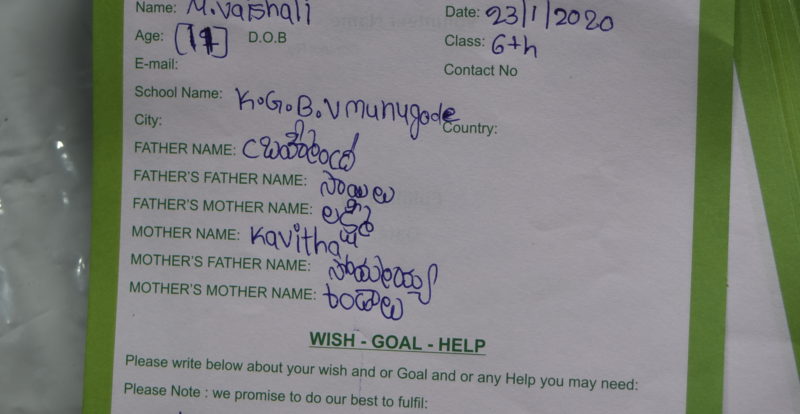 Name: M.Vaishali Date: 23/1/2020
Age: [11] D.O.B Class: 6th
E-mail: Contact No
School Name: K.G.B.V munugode
City: Country:
FATHER NAME:
FATHER'S FATHER NAME: సాయిలు
FATHER'S MOTHER NAME: లక్ష్మి
MOTHER NAME: Kavitha
MOTHER'S FATHER NAME:
MOTHER'S MOTHER NAME:
WISH - GOAL - HELP
Please write below about your wish and or Goal and or any Help you may need:
Please Note : we promise to do our best to fulfil: